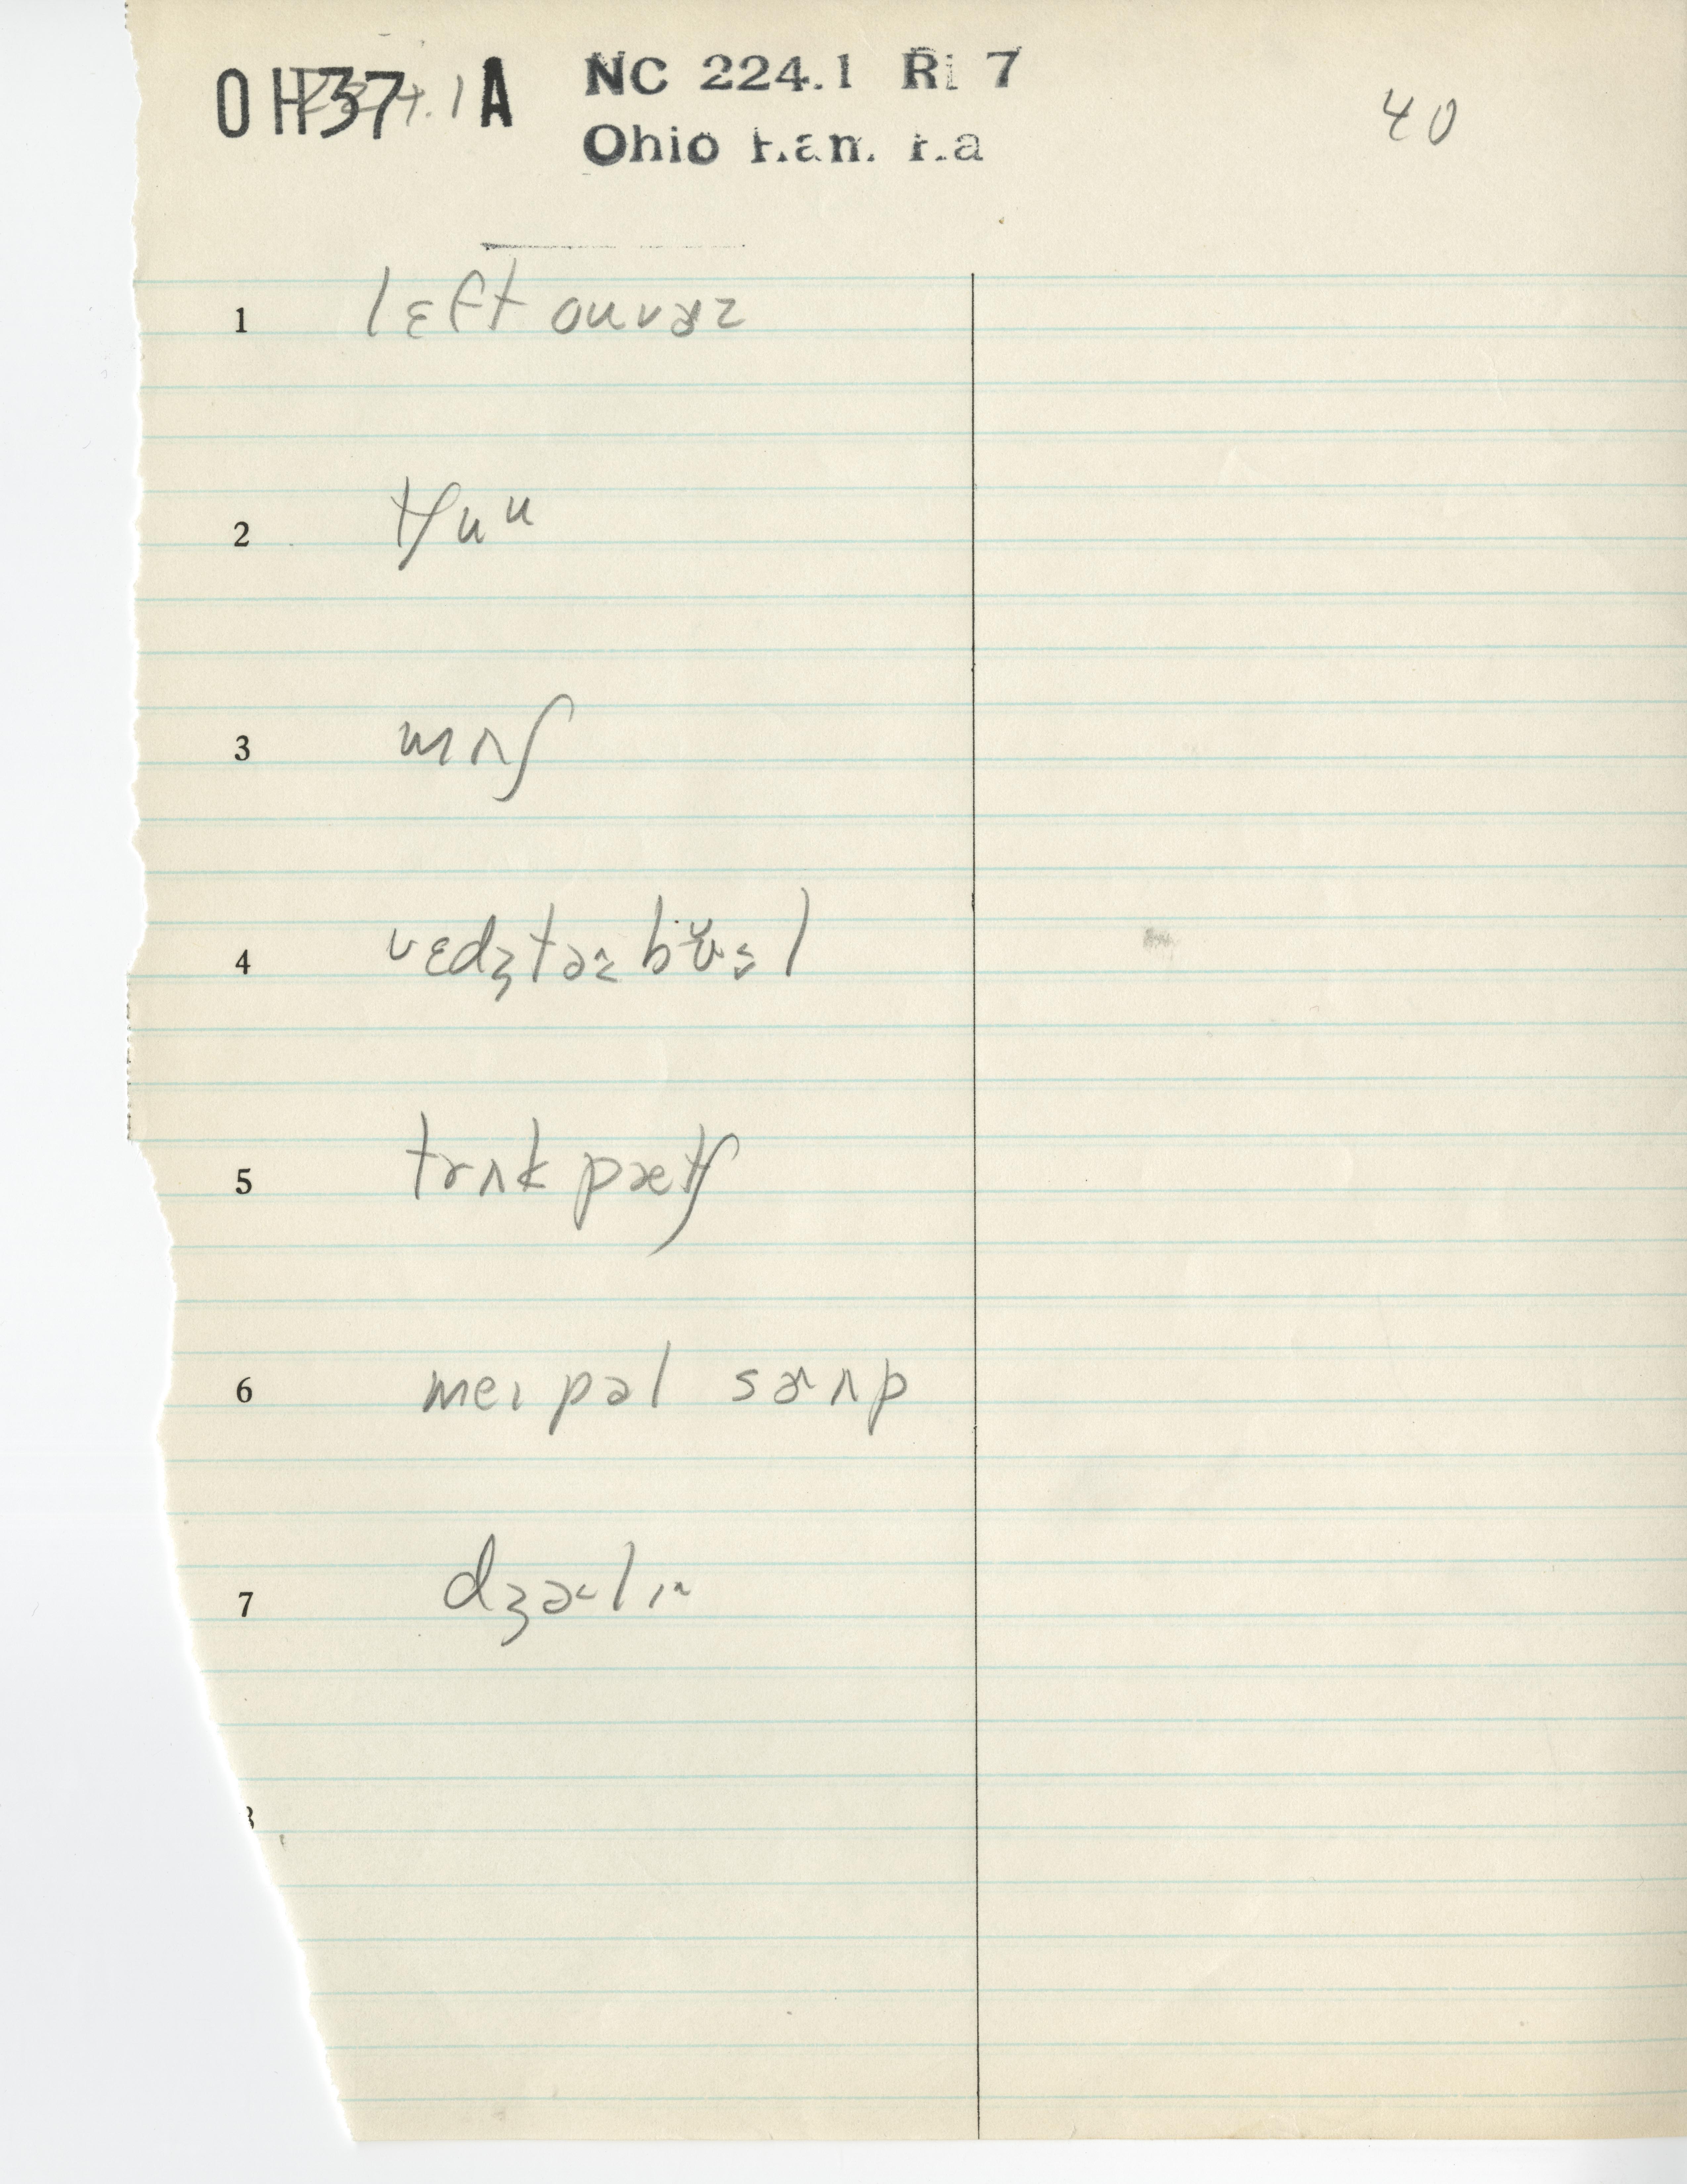 OH37A NC 224.1 Ri 7
Ohio 40
1 lɛft ouvɚz
2 tʃuᵘ
3 mʌʃ
4 vɛdʒtəz
5 trʌk pætʃ
6 meɪpəl sɚʌp
7